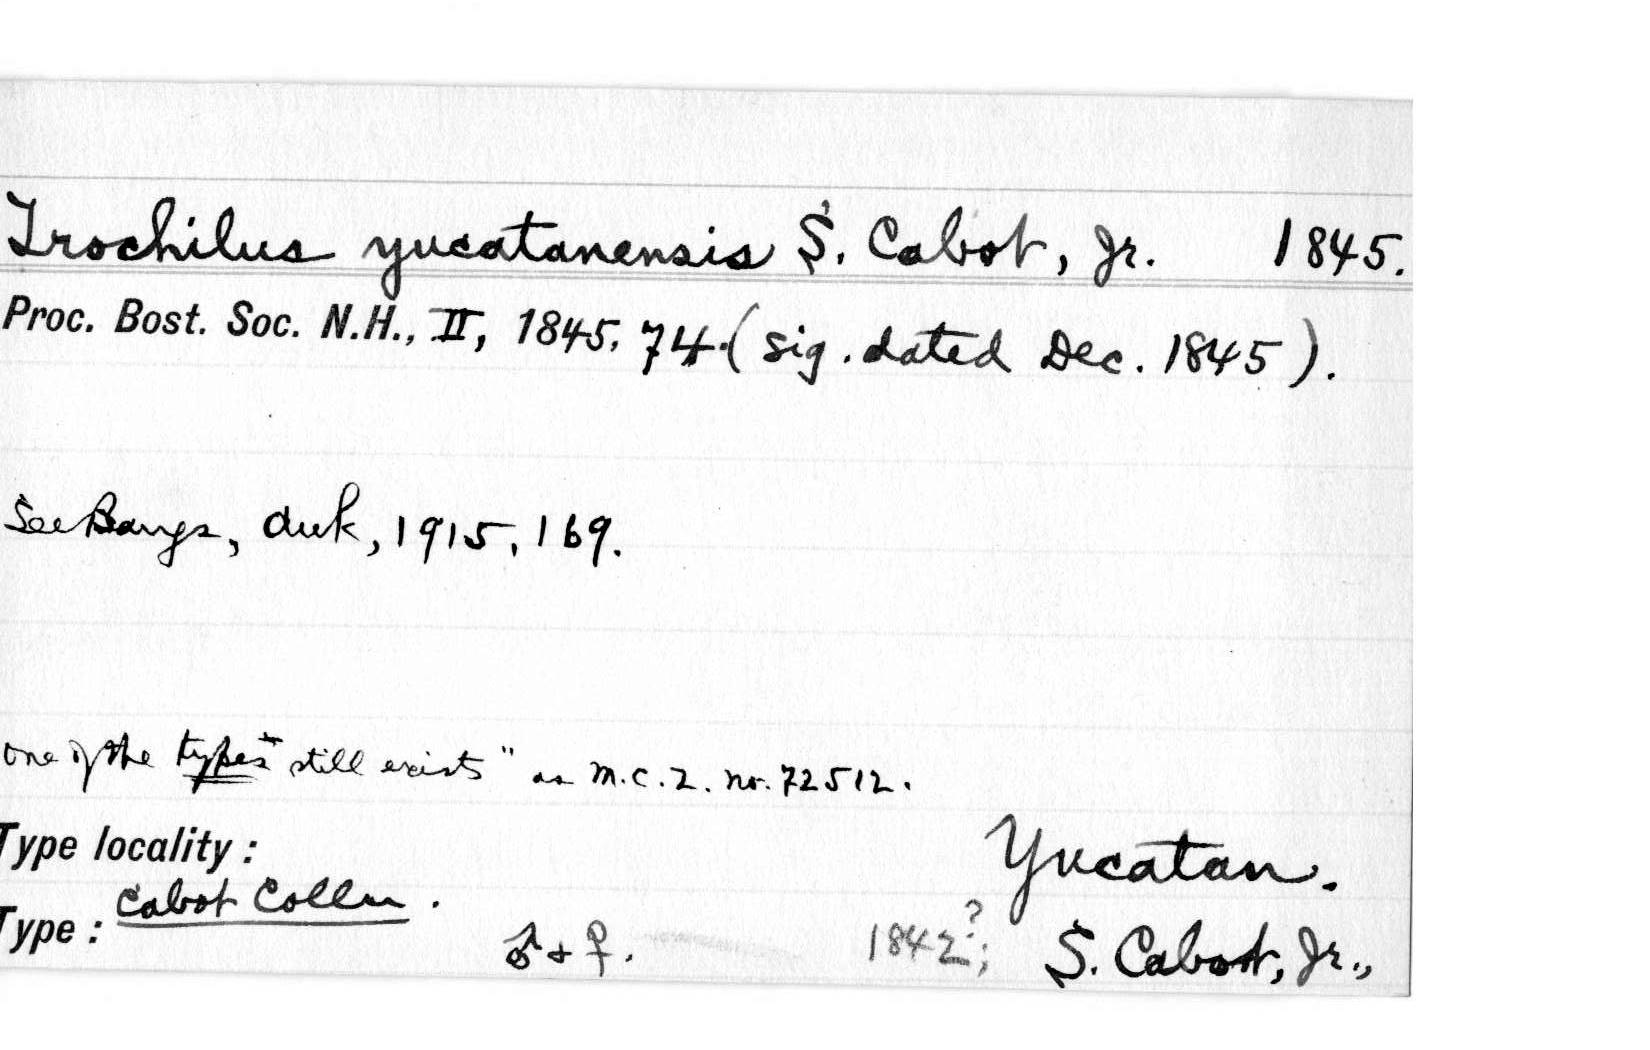 Trochilus yucatanensis S. Cabot, Jr. 1845.
Proc. Bost. Soc. N.H., II, 1845, 74. (sig. dated Dec. 1845).
See Bangs, Auk, 1915, 169.
one of the types "still exists" as M.C.Z. no. 72512.
Type locality: Yucatan.
Cabot Colln.
Type: ♂ + ♀. 1842?; S. Cabot, Jr.,